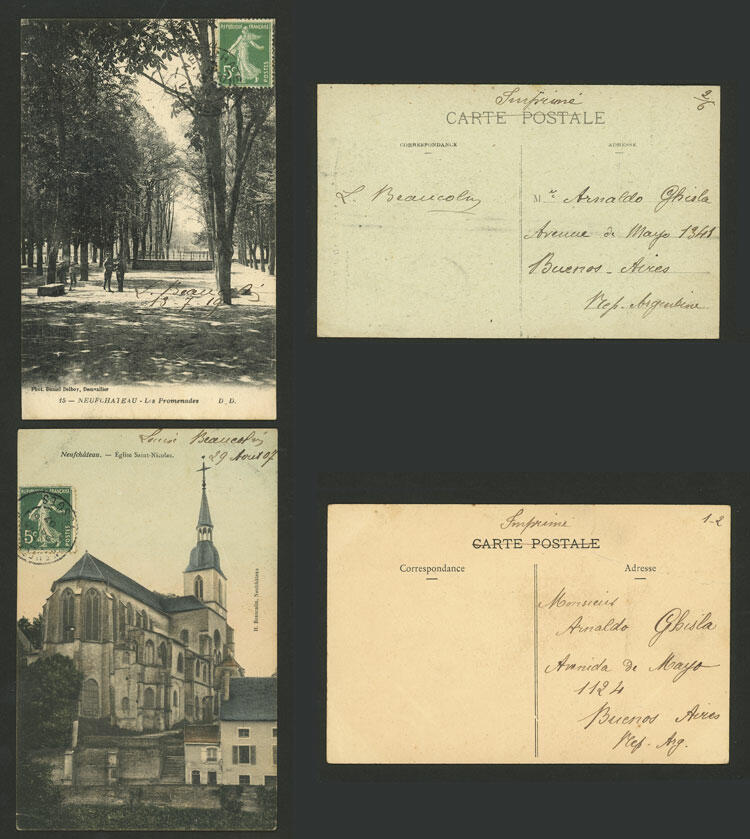 RÉPUBLIQUE FRANÇAISE
5c POSTES
L. Beaucolin
13-7-19
Phot. Daniel Delboy, Damvallier
15 — NEUFCHATEAU - Les Promenades D. D.
Imprimé
2/6
CARTE POSTALE
CORRESPONDANCE
ADRESSE
L. Beaucolin
Mr. Arnaldo Ghisla
Avenue de Mayo 1341
Buenos-Aires
Rep. Argentine
Louis Beaucolin
29 Aout 07
Neufchâteau. — Église Saint-Nicolas.
5c POSTES
Neufchâteau
Imprimé
1-2
CARTE POSTALE
Correspondance
Adresse
Monsieur
Arnaldo Ghisla
Avenida de Mayo
1124
Buenos Aires
Rep. Arg.